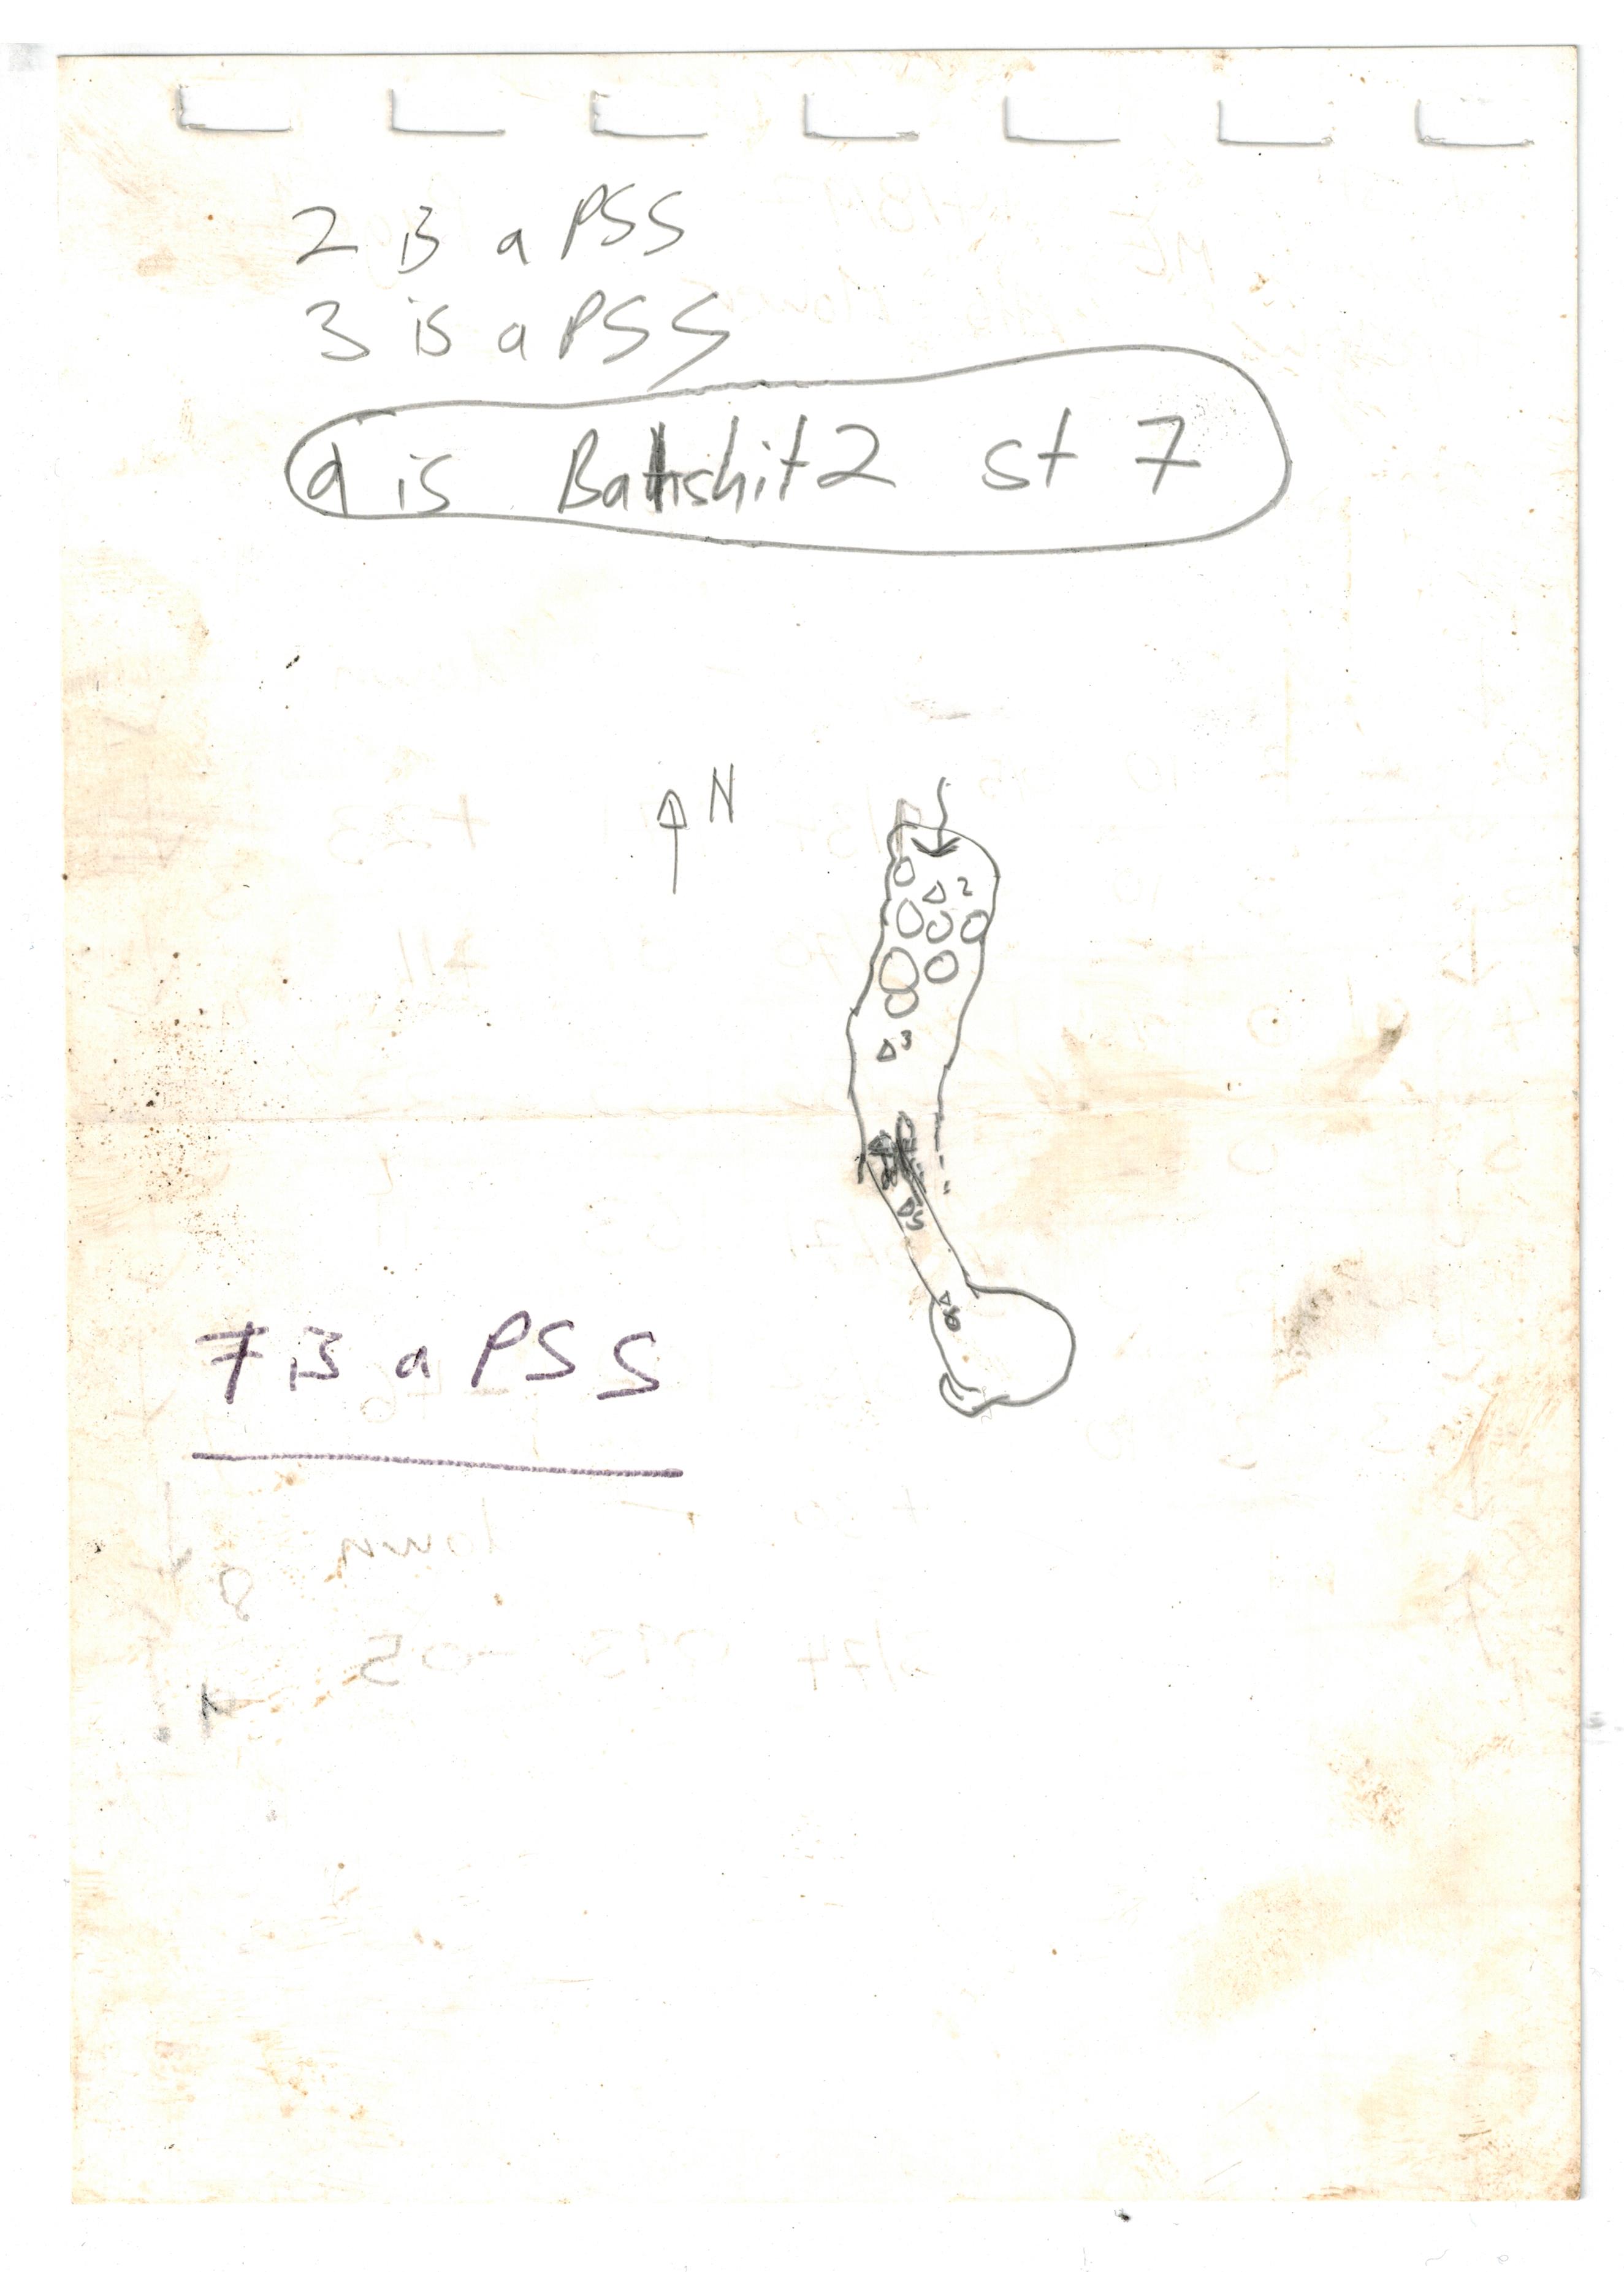 2 is a PSS
3 is a PSS
a is Batshit2 st 7
N
2
3
5
6
7 is a PSS